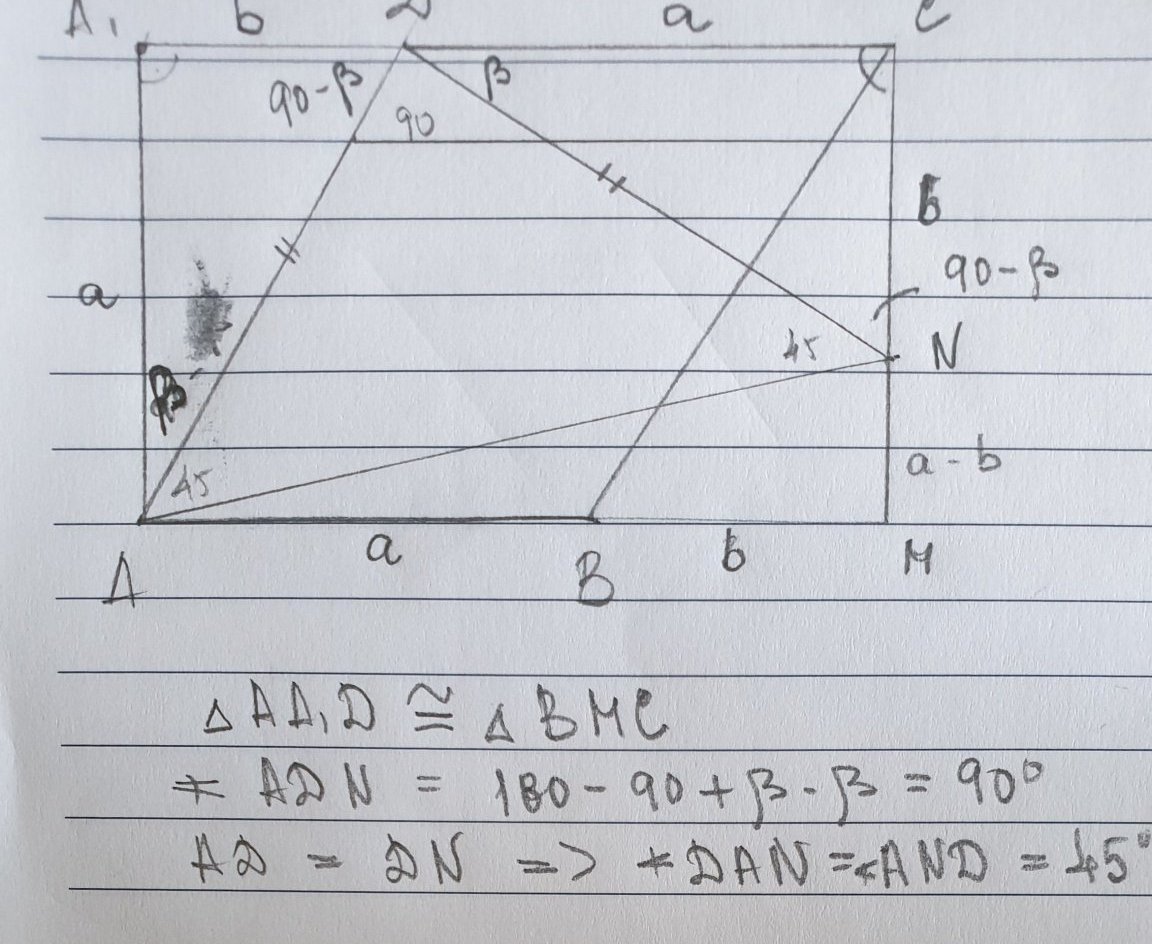 A₁ b D a C
90-β β
90
b
a 90-β
45 N
β
45 a-b
a b
A B M
△AA₁D ≅ △BMC
∢ADN = 180-90+β-β = 90°
AD = DN => ∢DAN=∢AND = 45°